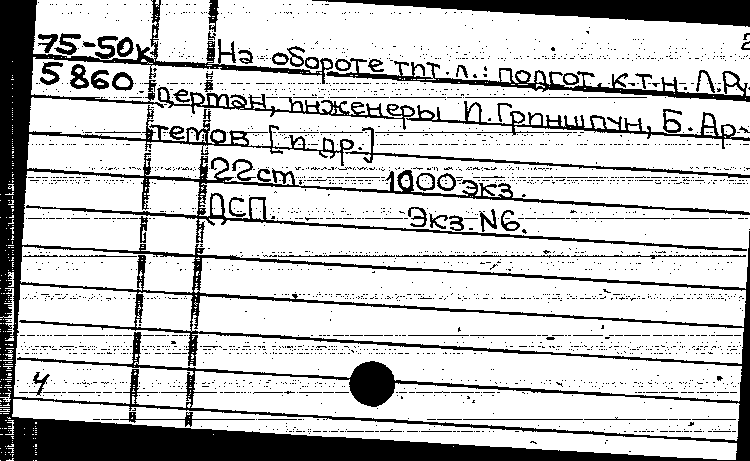 2
75-50к На обороте тит.л.: подгот. к.т.н. Л.Ру-
5860 дерман, инженеры И.Гриншпун, Б.Ар-
темов [и др.]
22ст. 1000 экз.
ДСП. Экз.N6.
4